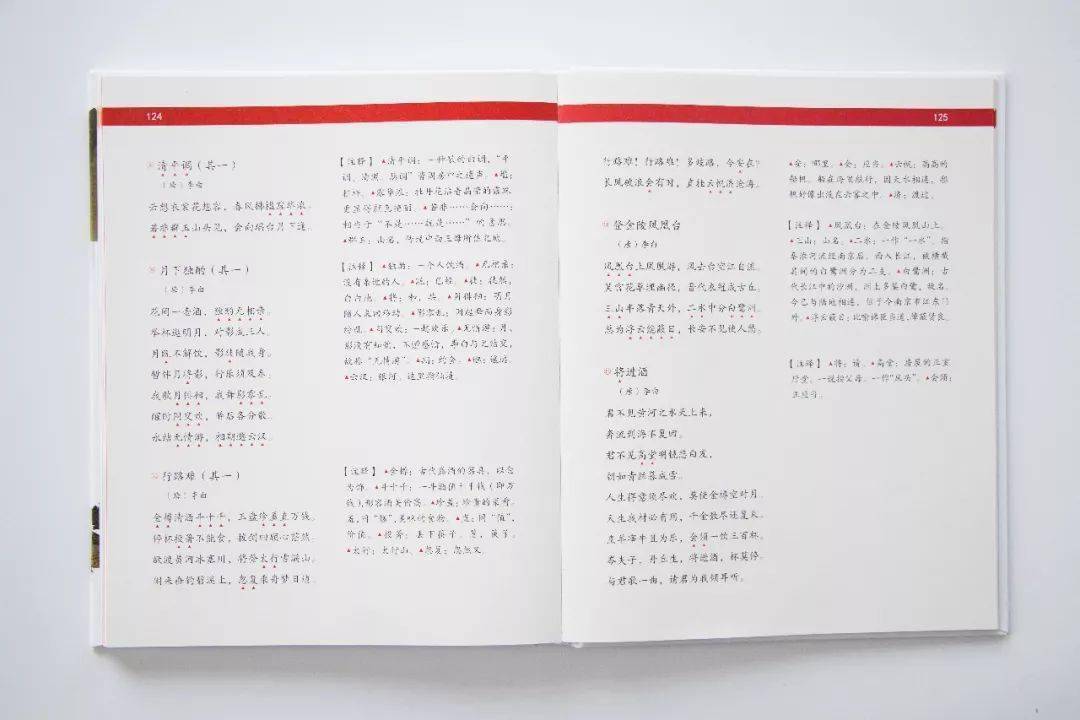 124
清平调（其一）
（唐）李白
云想衣裳花想容，春风拂槛露华浓。
若非群玉山头见，会向瑶台月下逢。
【注释】▲清平调：一种装的曲调，“平
调、清调、瑟调”皆周房中之遗声。▲槛：
栏杆。▲露华浓：牡丹花沾着晶莹的露珠
更显得颜色艳丽。▲若非……会向……：
相当于“不是……就是……”的意思。
▲群玉：山名，传说中西王母所住之地。
月下独酌（其一）
（唐）李白
花间一壶酒，独酌无相亲。
举杯邀明月，对影成三人。
月既不解饮，影徒随我身。
暂伴月将影，行乐须及春。
我歌月徘徊，我舞影零乱。
醒时同交欢，醉后各分散。
永结无情游，相期邈云汉。
【注释】▲独酌：一个人饮酒。▲无相亲：
没有亲近的人。▲既：已经。▲徒：徒然，
白白地。▲将：和，共。▲月徘徊：明月
随人来回移动。▲影零乱：因起舞而身影
纷乱。▲同交欢：一起欢乐。▲无情游：月、
影没有知觉，不懂感情，李白与之结交，
故称“无情游”。▲期：约会。▲邈：遥远。
▲云汉：银河，这里指仙境。
行路难（其一）
（唐）李白
金樽清酒斗十千，玉盘珍羞直万钱。
停杯投箸不能食，拔剑四顾心茫然。
欲渡黄河冰塞川，将登太行雪满山。
闲来垂钓碧溪上，忽复乘舟梦日边。
【注释】▲金樽：古代盛酒的器具，以金
为饰。▲斗十千：一斗值十千钱（即万
钱），形容酒美价高。▲珍羞：珍贵的菜肴。
羞，同“馐”，美味的食物。▲直：同“值”，
价值。▲投箸：丢下筷子。箸，筷子。
▲太行：太行山。▲忽复：忽然又。
125
行路难！行路难！多歧路，今安在？
长风破浪会有时，直挂云帆济沧海。
▲安：哪里。▲会：应当。▲云帆：高高的
船帆。船在海里航行，因天水相连，船
帆好像出没在云雾之中。▲济：渡过。
登金陵凤凰台
（唐）李白
凤凰台上凤凰游，凤去台空江自流。
吴宫花草埋幽径，晋代衣冠成古丘。
三山半落青天外，二水中分白鹭洲。
总为浮云能蔽日，长安不见使人愁。
【注释】▲凤凰台：在金陵凤凰山上。
▲三山：山名。▲二水：一作“一水”。指
秦淮河流经南京后，西入长江，被横截
其间的白鹭洲分为二支。▲白鹭洲：古
代长江中的沙洲，洲上多集白鹭，故名。
今已与陆地相连，位于今南京市江东门
外。▲浮云蔽日：比喻谗臣当道，障蔽贤良。
将进酒
（唐）李白
君不见黄河之水天上来，
奔流到海不复回。
君不见高堂明镜悲白发，
朝如青丝暮成雪。
人生得意须尽欢，莫使金樽空对月。
天生我材必有用，千金散尽还复来。
烹羊宰牛且为乐，会须一饮三百杯。
岑夫子，丹丘生，将进酒，杯莫停。
与君歌一曲，请君为我倾耳听。
【注释】▲将：请。▲高堂：房屋的正室
厅堂。一说指父母。一作“床头”。▲会须：
正应当。